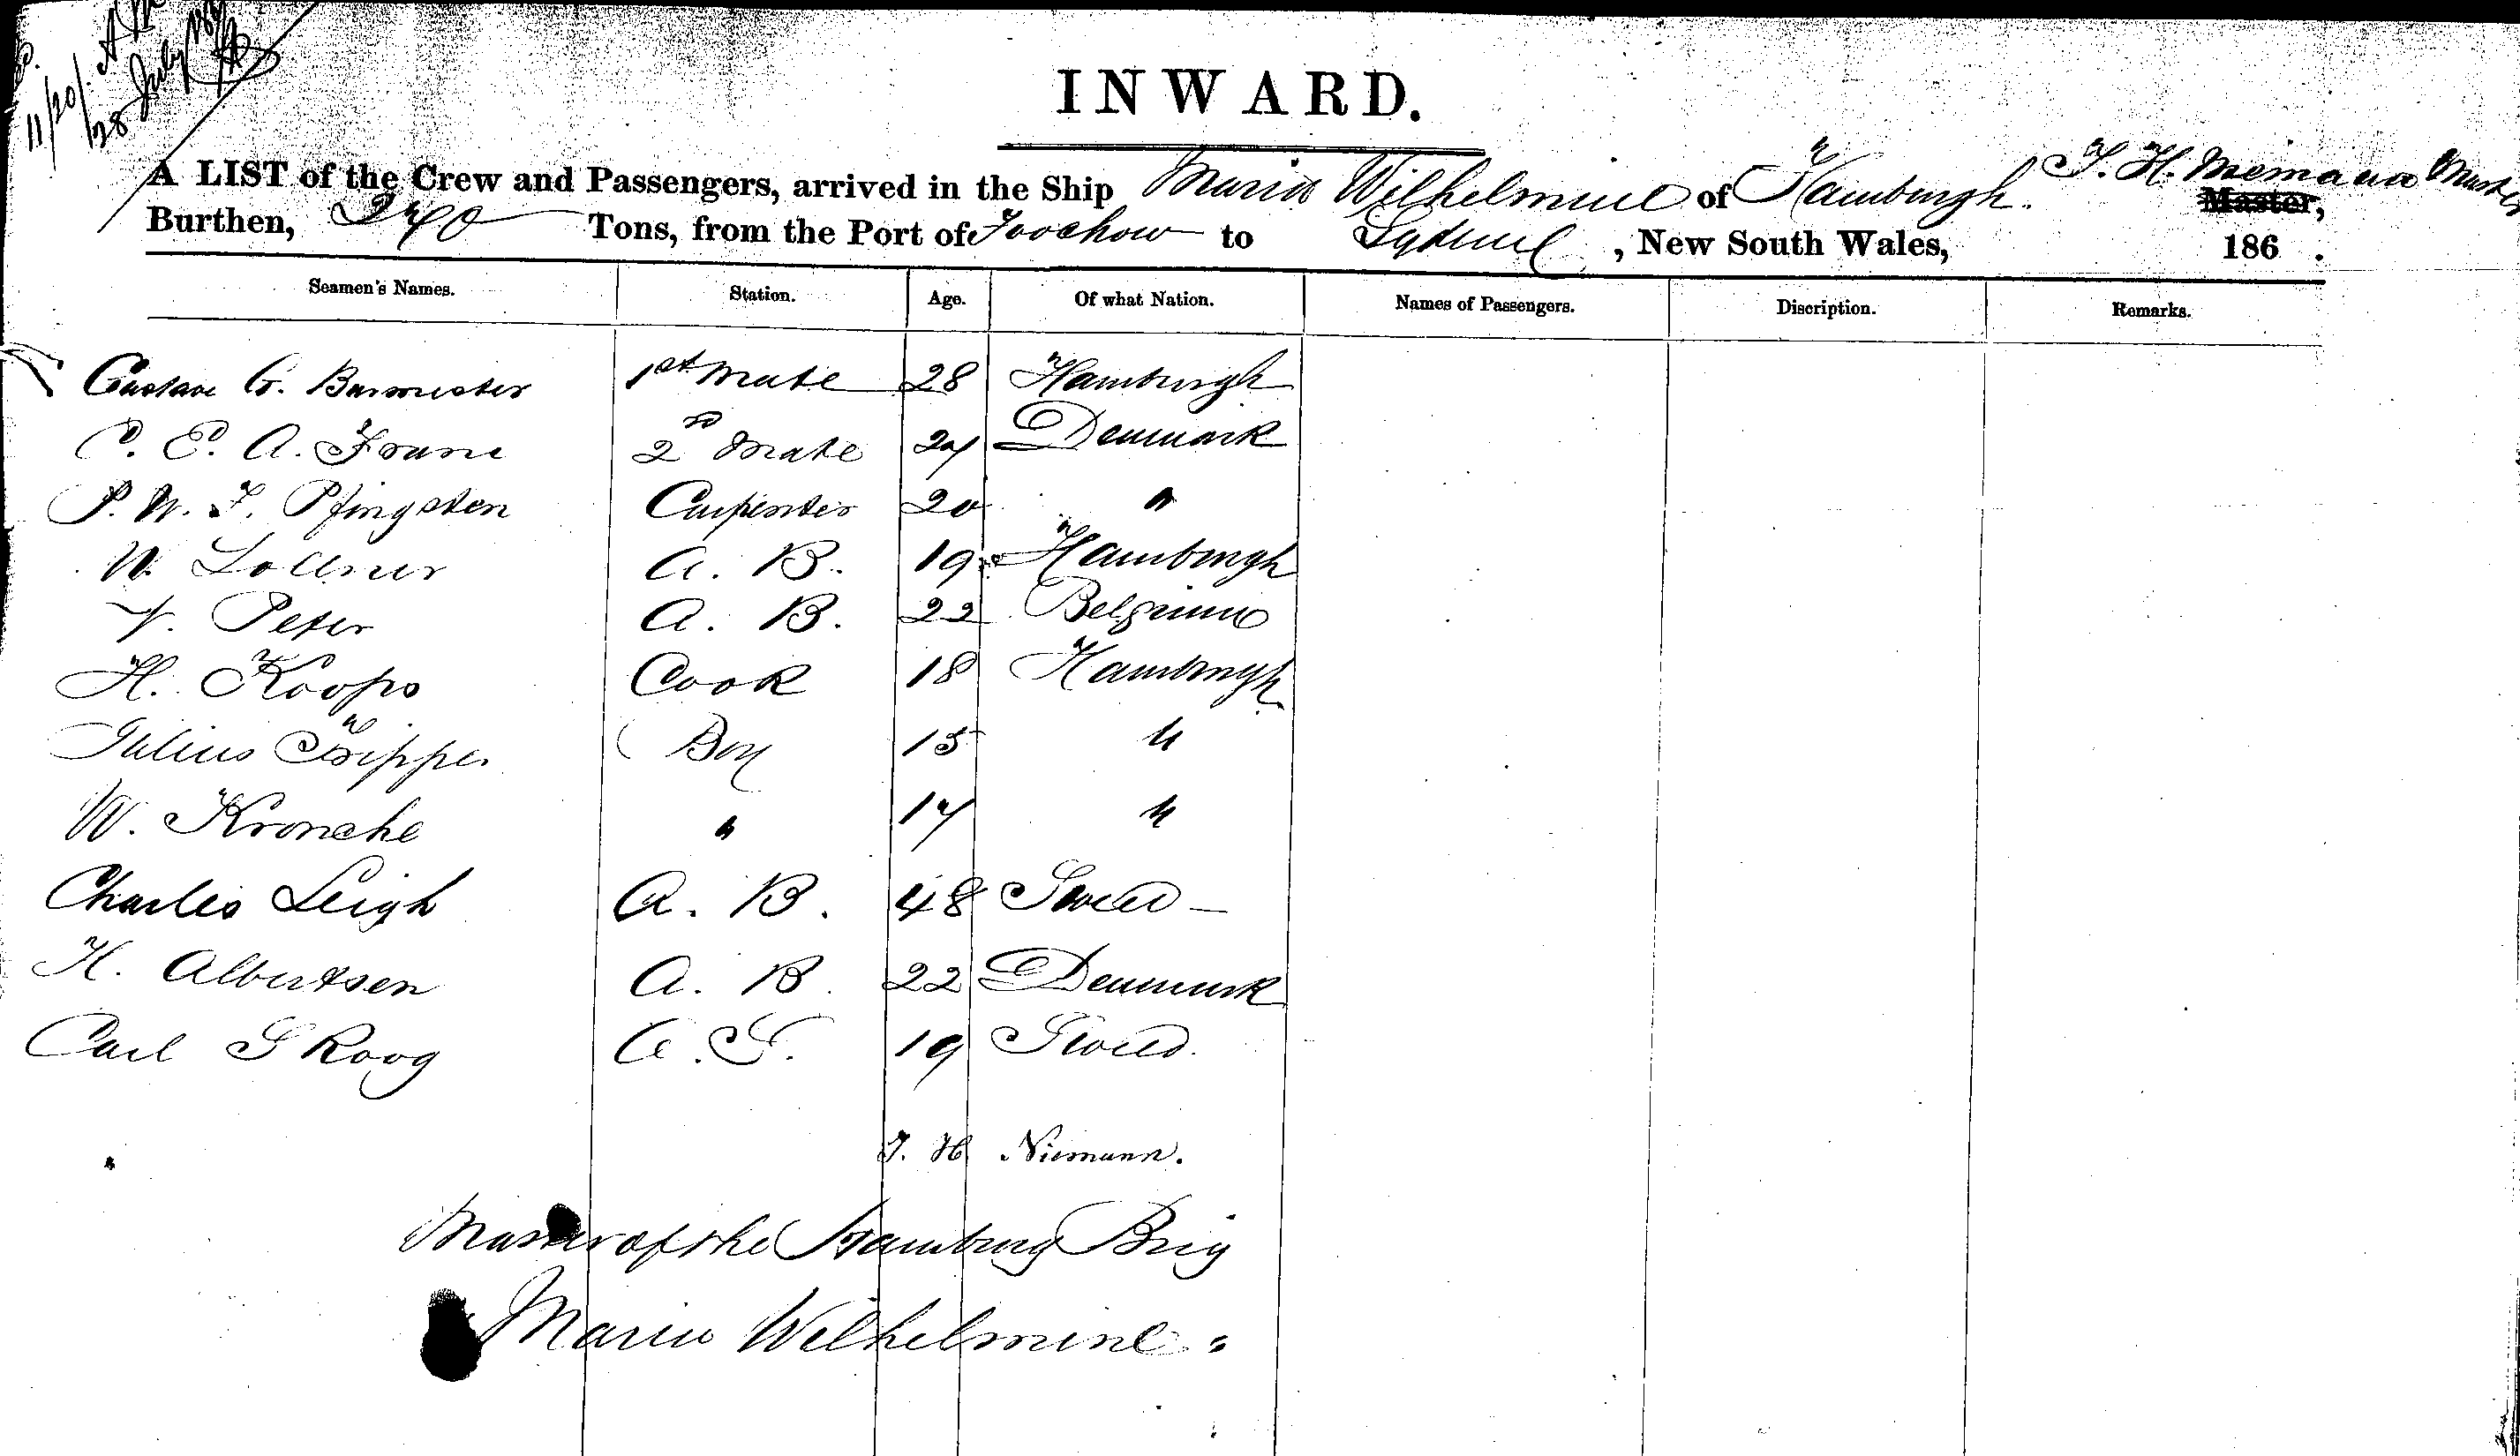 11/20/.
28 July 186
INWARD.
A LIST of the Crew and Passengers, arrived in the Ship Maria Wilhelmine of Hamburgh. T. H. Niemann Master
Master,
Burthen, Tons, from the Port of Foochow to Sydney, New South Wales, 186 .
Seamen's Names. Station. Age. Of what Nation. Names of Passengers. Discription. Remarks.
Gustave G. Burmester 1st Mate 28 Hamburgh
C. E. A. 2nd Mate 24 Denmark
P. W. F. Pfingsten Carpenter 20 "
W. Lollner A. B. 19 Hamburgh
Peter A. B. 22 Belgium
H. Koops Cook 18 Hamburgh
Julius Boy 15 "
W. Kronche " 17 "
Charles Leigh A. B. 48 Swed
H. Albertsen A. B. 22 Denmark
Carl Skoog O. S. 19 Swed.
T. H. Niemann.
Master of the Hamburg Brig
Maria Wilhelmine.